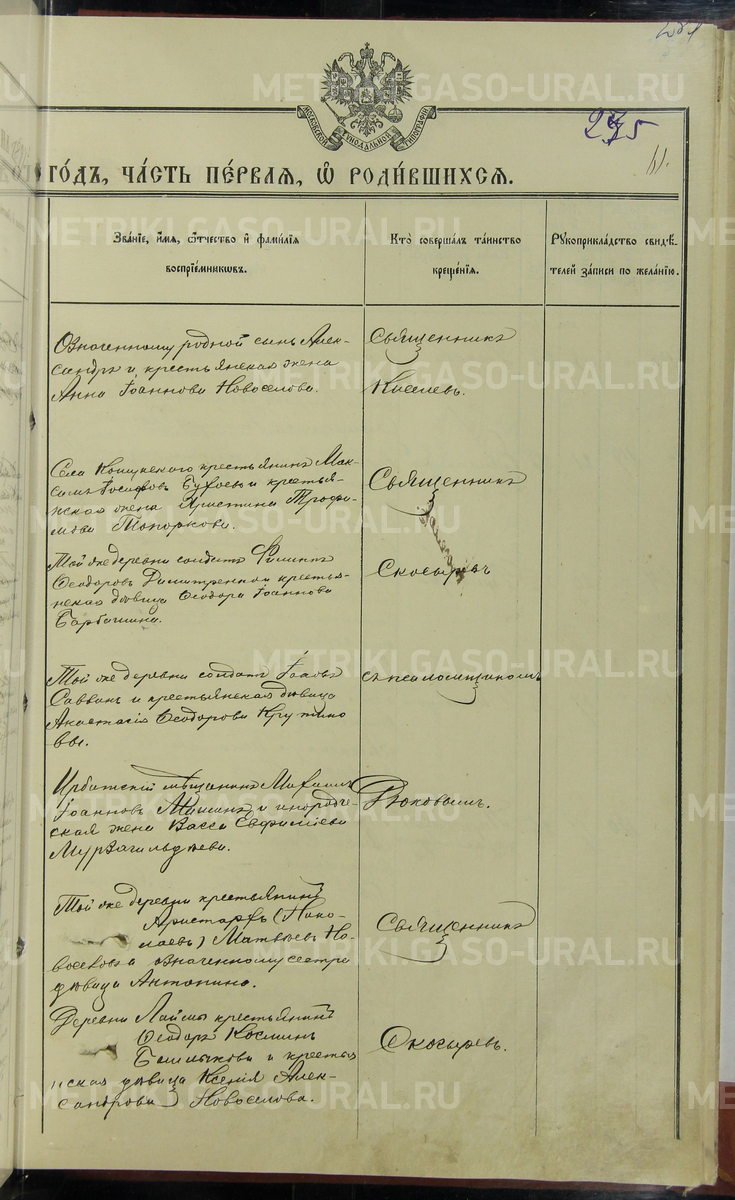 275
61.
МОСКОВСКОЙ СУНОДАЛЬНОЙ ТИПОГРАФИИ
ГО́ДЪ, ЧА́СТЬ ПЕ́РВАЯ, Ѡ҆ РОДИ́ВШИХСЯ.
Зва́нїе, и҆́мя, ѻ҆́тчество и҆ фами́лїя
воспрїе́мникѡвъ.
Кто̀ соверша́лъ та́инство
креще́нїѧ.
Рꙋкоприкла́дство свидѣ́-
телей за́писи по жела́нїю.
Означенному родной сынъ Алек-
сандръ и крестьянская жена
Анна Іоаннова Новоселова.
Священникъ
Киселевъ.
Села крестьянинъ Мак-
симъ Іосифовъ и крестья-
нская жена Христина Трофи-
мова Топоркова.
Священникъ
Той же деревни солдатъ Филиппъ
Ѳеодоровъ и крестья-
нская дѣвица Ѳеодора Іоаннова
Барбашина.
Скосыревъ
Той же деревни солдатъ
Саввинъ и крестьянская дѣвица
Анастасія Ѳеодорова Крутико
вы.
съ псаломщикомъ
Ирбитскій мѣщанинъ Михаилъ
Іоанновъ и инороде-
ская жена Васса Евфиміева
Мурзагильдѣева.
Той же деревни крестьянинъ
Аристархъ (Нико-
лаевъ) Матвѣевъ Но-
воселовъ и означенному сестра
дѣвица Антонина.
Священникъ
Деревни Лаймы крестьянинъ
Ѳеодоръ Космин
Башлыковъ и крестья
нская дѣвица Ксенія Алек-
сандрова Новоселова.
Скосыревъ.
METRIKI.GASO-URAL.RU